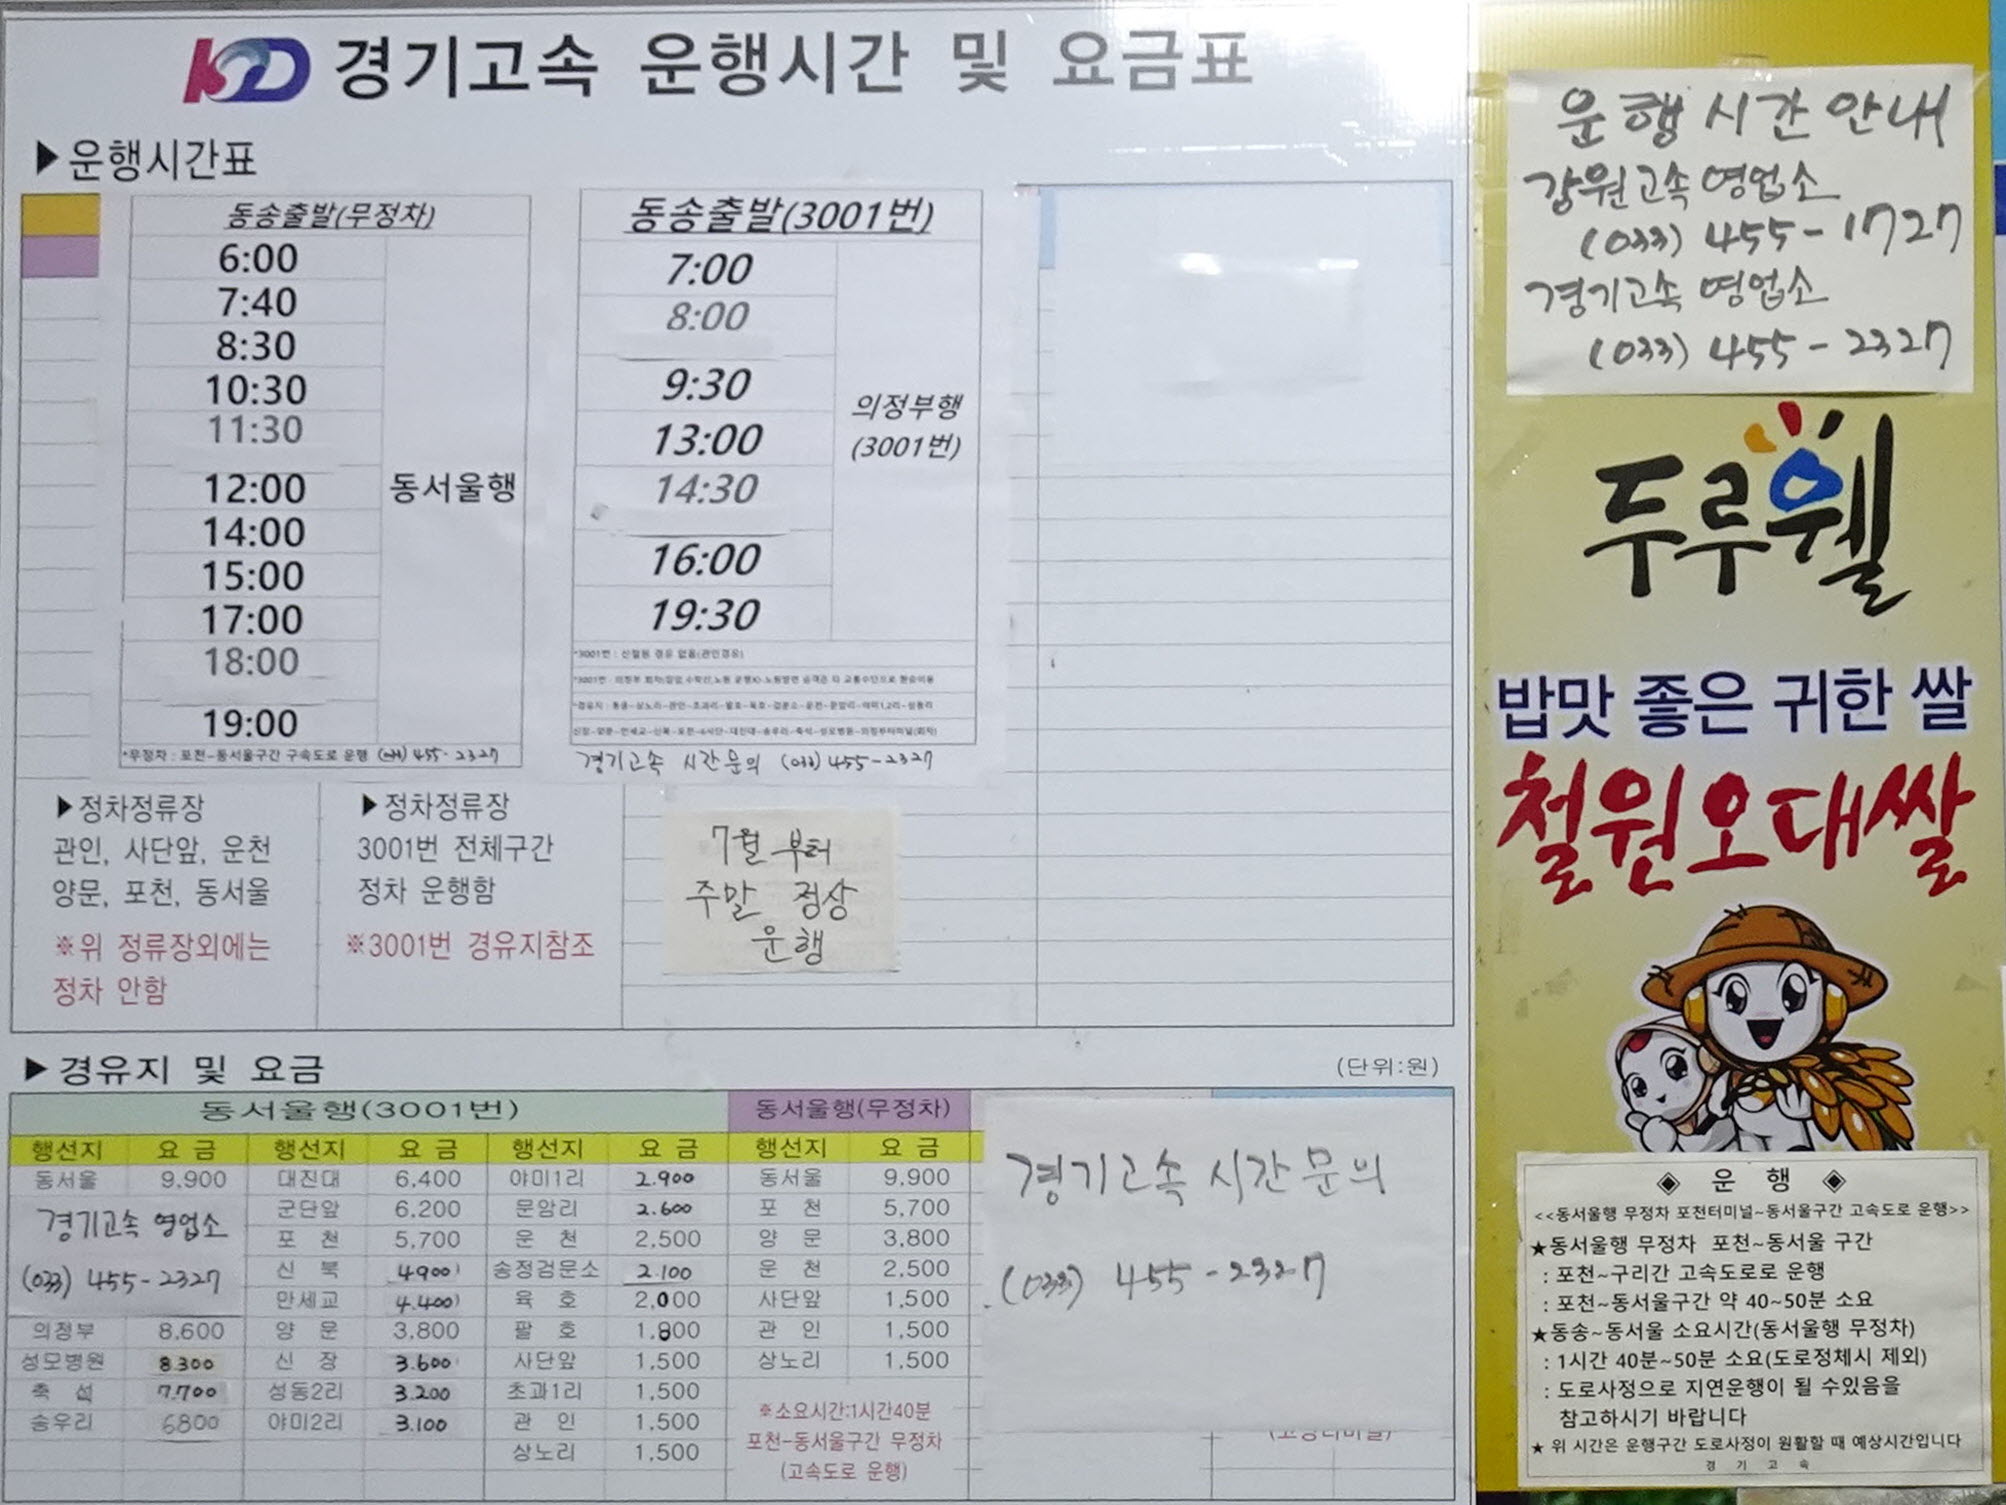 KD 경기고속 운행시간 및 요금표
▶운행시간표
동송출발(무정차)
6:00
7:40
8:30
10:30
11:30
12:00
14:00
15:00
17:00
18:00
19:00
동서울행
*무정차 : 포천~동서울구간 구속도로 운행 (033) 455-2327
동송출발(3001번)
7:00
8:00
9:30
13:00
14:30
16:00
19:30
의정부행
(3001번)
*3001번 : 신철원 경유 없음(관인경유)
경기고속 시간문의 (033) 455-2327
▶정차정류장
관인, 사단앞, 운천
양문, 포천, 동서울
※위 정류장외에는
정차 안함
▶정차정류장
3001번 전체구간
정차 운행함
※3001번 경유지참조
7월 부터
주말 정상
운행
▶경유지 및 요금
(단위:원)
동서울행(3001번) 동서울행(무정차)
행선지 요 금 행선지 요 금 행선지 요 금 행선지 요 금
동서울 9,900 대진대 6,400 야미1리 2.900 동서울 9,900
군단앞 6,200 문암리 2.600 포 천 5,700
경기고속 영업소
포 천 5,700 운 천 2,500 양 문 3,800
(033) 455-2327
신 북 4900 송정검문소 2.100 운 천 2,500
만세교 4.400 육 호 2,000 사단앞 1,500
의정부 8,600 양 문 3,800 팔 호 1,800 관 인 1,500
성모병원 8.300 신 장 3.600 사단앞 1,500 상노리 1,500
축 석 7.700 성동2리 3.200 초과1리 1,500
송우리 6800 야미2리 3.100 관 인 1,500
상노리 1,500
※소요시간:1시간40분
포천~동서울구간 무정차
(고속도로 운행)
경기고속 시간문의
(033) 455-2327
운행시간안내
강원고속 영업소
(033) 455-1727
경기고속 영업소
(033) 455-2327
두루웰
밥맛 좋은 귀한 쌀
철원오대쌀
◈ 운 행 ◈
<<동서울행 무정차 포천터미널~동서울구간 고속도로 운행>>
★동서울행 무정차 포천~동서울 구간
: 포천~구리간 고속도로로 운행
: 포천~동서울구간 약 40~50분 소요
★동송~동서울 소요시간(동서울행 무정차)
: 1시간 40분~50분 소요(도로정체시 제외)
: 도로사정으로 지연운행이 될 수있음을
참고하시기 바랍니다
★ 위 시간은 운행구간 도로사정이 원활할 때 예상시간입니다
경 기 고 속